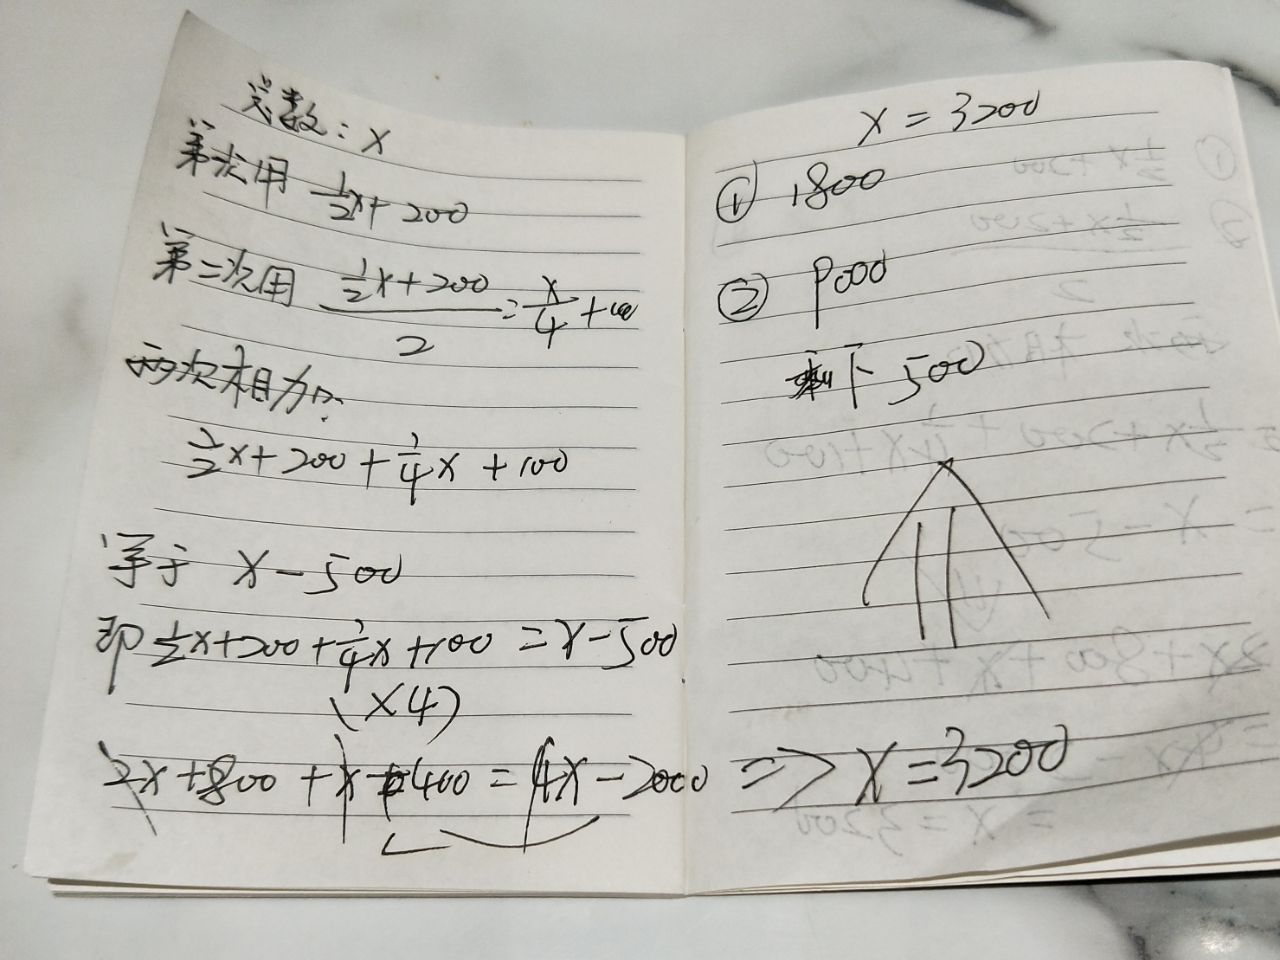 总数：x
第一次用 1/2x+200
第二次用 (1/2x+200)/2 = x/4+100
两次相加：
1/2x+200+1/4x+100
等于 x-500
即 1/2x+200+1/4x+100=x-500
(×4)
2x+800+x+400=4x-2000 => x=3200
x=3200
① 1800
② 900
剩下 500